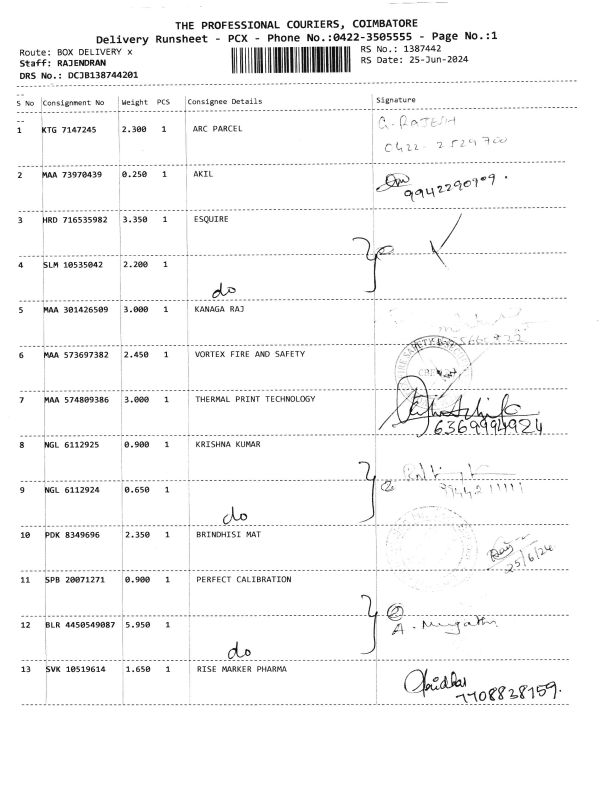 THE PROFESSIONAL COURIERS, COIMBATORE
Delivery Runsheet - PCX - Phone No.:0422-3505555 - Page No.:1
Route: BOX DELIVERY x
RS No.: 1387442
Staff: RAJENDRAN
RS Date: 25-Jun-2024
DRS No.: DCJB138744201
S No Consignment No Weight PCS Consignee Details Signature
1 KTG 7147245 2.300 1 ARC PARCEL G. RAJESH
0422-2529700
2 MAA 73970439 0.250 1 AKIL
9942290909.
3 HRD 716535982 3.350 1 ESQUIRE
4 SLM 10535042 2.200 1
do
5 MAA 301426509 3.000 1 KANAGA RAJ
6 MAA 573697382 2.450 1 VORTEX FIRE AND SAFETY
7 MAA 574809386 3.000 1 THERMAL PRINT TECHNOLOGY
6369994924
8 NGL 6112925 0.900 1 KRISHNA KUMAR
9944211111
9 NGL 6112924 0.650 1
do
10 PDK 8349696 2.350 1 BRINDHISI MAT
25/6/24
11 SPB 20071271 0.900 1 PERFECT CALIBRATION
12 BLR 4450549087 5.950 1
do
13 SVK 10519614 1.650 1 RISE MARKER PHARMA
7708838159.